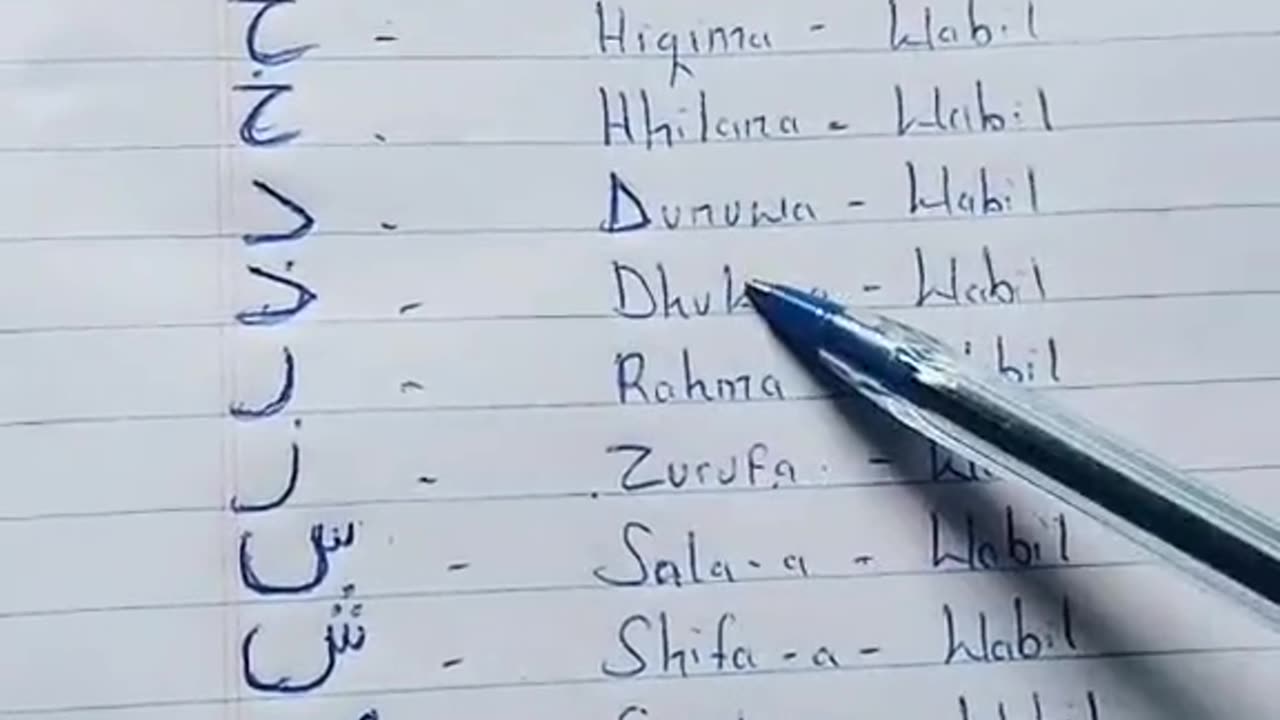 ح - Hiqima - Wabil
خ - Hhilana - Wabil
د - Dunuwa - Wabil
ذ - - Wabil
ر - Rahma
ز - Zurufa -
س - Sala-a - Wabil
ش - Shifa-a - Wabil